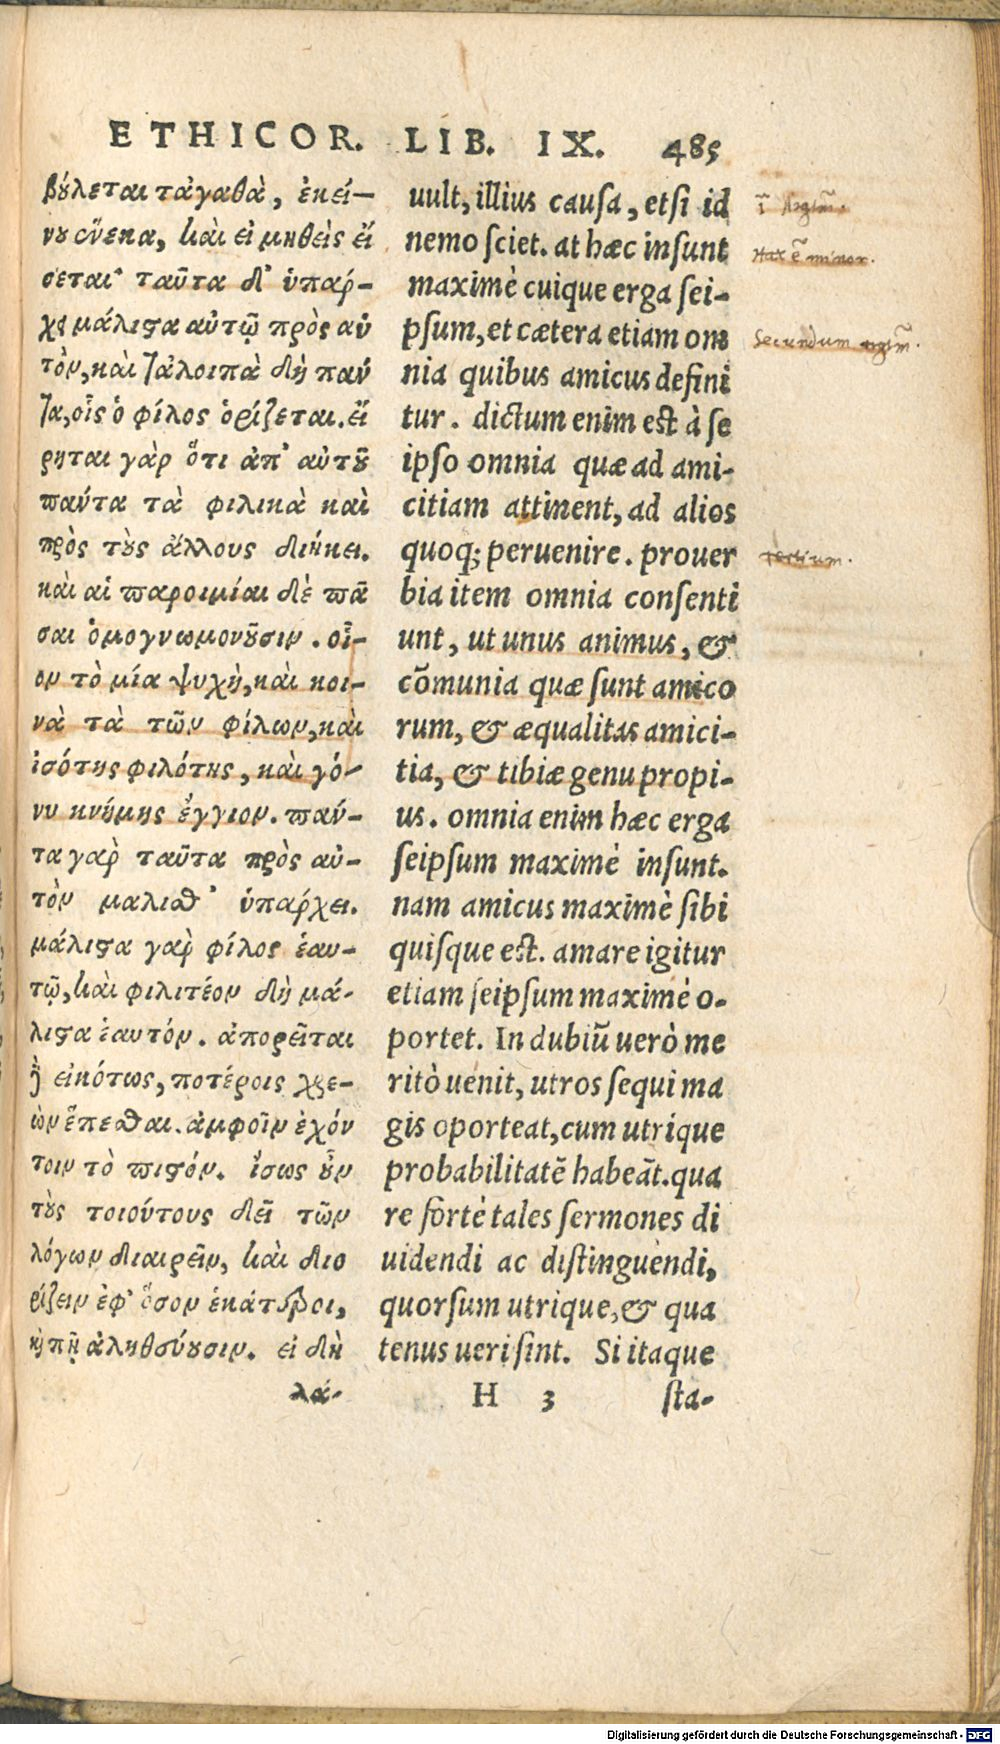 ETHICOR. LIB. IX. 485
βούλεται τἀγαθὰ, ἐκεί-
νου ἕνεκα, καὶ εἰ μηθεὶς εἴ
σεται· ταῦτα δ' ὑπάρ-
χει μάλιστα αὐτῷ πρὸς αὑ
τὸν, καὶ τὰ λοιπὰ δὴ πάν
τα, οἷς ὁ φίλος ὁρίζεται. εἴ
ρηται γὰρ ὅτι ἀπ' αὐτοῦ
πάντα τὰ φιλικὰ καὶ
πρὸς τοὺς ἄλλους διήκει.
καὶ αἱ παροιμίαι δὲ πᾶ
σαι ὁμογνωμονοῦσιν. οἷ-
ον τὸ μία ψυχὴ, καὶ κοι-
νὰ τὰ τῶν φίλων, καὶ
ἰσότης φιλότης, καὶ γό-
νυ κνήμης ἔγγιον. πάν-
τα γὰρ ταῦτα πρὸς αὑ-
τὸν μάλισθ' ὑπάρχει.
μάλιστα γὰρ φίλος ἑαυ-
τῷ, καὶ φιλητέον δὴ μά-
λιστα ἑαυτόν. ἀπορεῖται
δὴ εἰκότως, ποτέροις χρε-
ὼν ἕπεσθαι. ἀμφοῖν ἐχόν
τοιν τὸ πιστόν. ἴσως οὖν
τοὺς τοιούτους δεῖ τῶν
λόγων διαιρεῖν, καὶ διο
ρίζειν ἐφ' ὅσον ἑκάτεροι,
καὶ πῇ ἀληθεύουσιν. εἰ δὴ
λά-
uult, illius causa, etsi id
nemo sciet. at hæc insunt
maximè cuique erga sei-
psum, et cætera etiam om
nia quibus amicus defini
tur. dictum enim est à se
ipso omnia quæ ad ami-
citiam attinent, ad alios
quoq; peruenire. prouer
bia item omnia consenti
unt, ut unus animus, &
cōmunia quæ sunt amico
rum, & æqualitas amici-
tia, & tibiæ genu propi-
us. omnia enim hæc erga
seipsum maximè insunt.
nam amicus maximè sibi
quisque est. amare igitur
etiam seipsum maximè o-
portet. In dubiū uerò me
ritò uenit, utros sequi ma
gis oporteat, cum utrique
probabilitatē habeāt. qua
re fortè tales sermones di
uidendi ac distinguendi,
quorsum utrique, & qua
tenus ueri sint. Si itaque
H 3 sta-
minor.
Secundum
tertium.
Digitalisierung gefördert durch die Deutsche Forschungsgemeinschaft - DFG